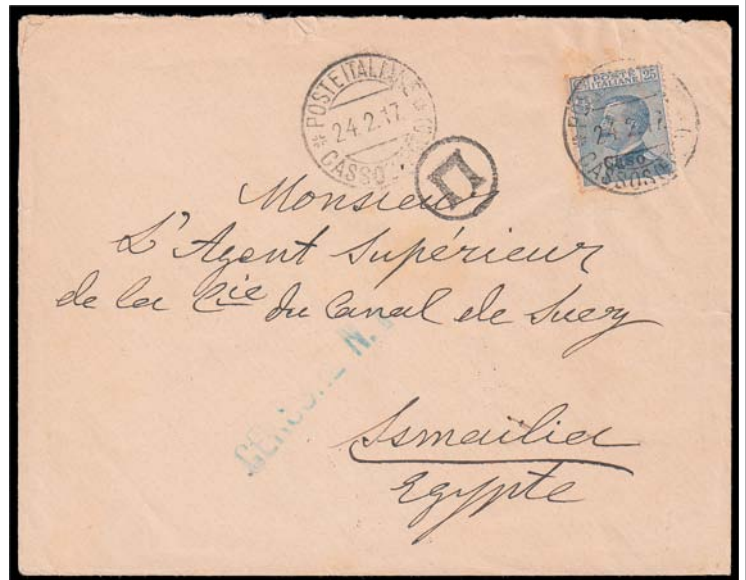 POSTE ITALIANE
24.2.17
CASSO
POSTE ITALIANE 25
24.2.17
Caso
CASSO
Monsieur
L'Agent Supérieur
de la Cie du Canal de Suez
CENSURE N.
Ismailia
Egypte